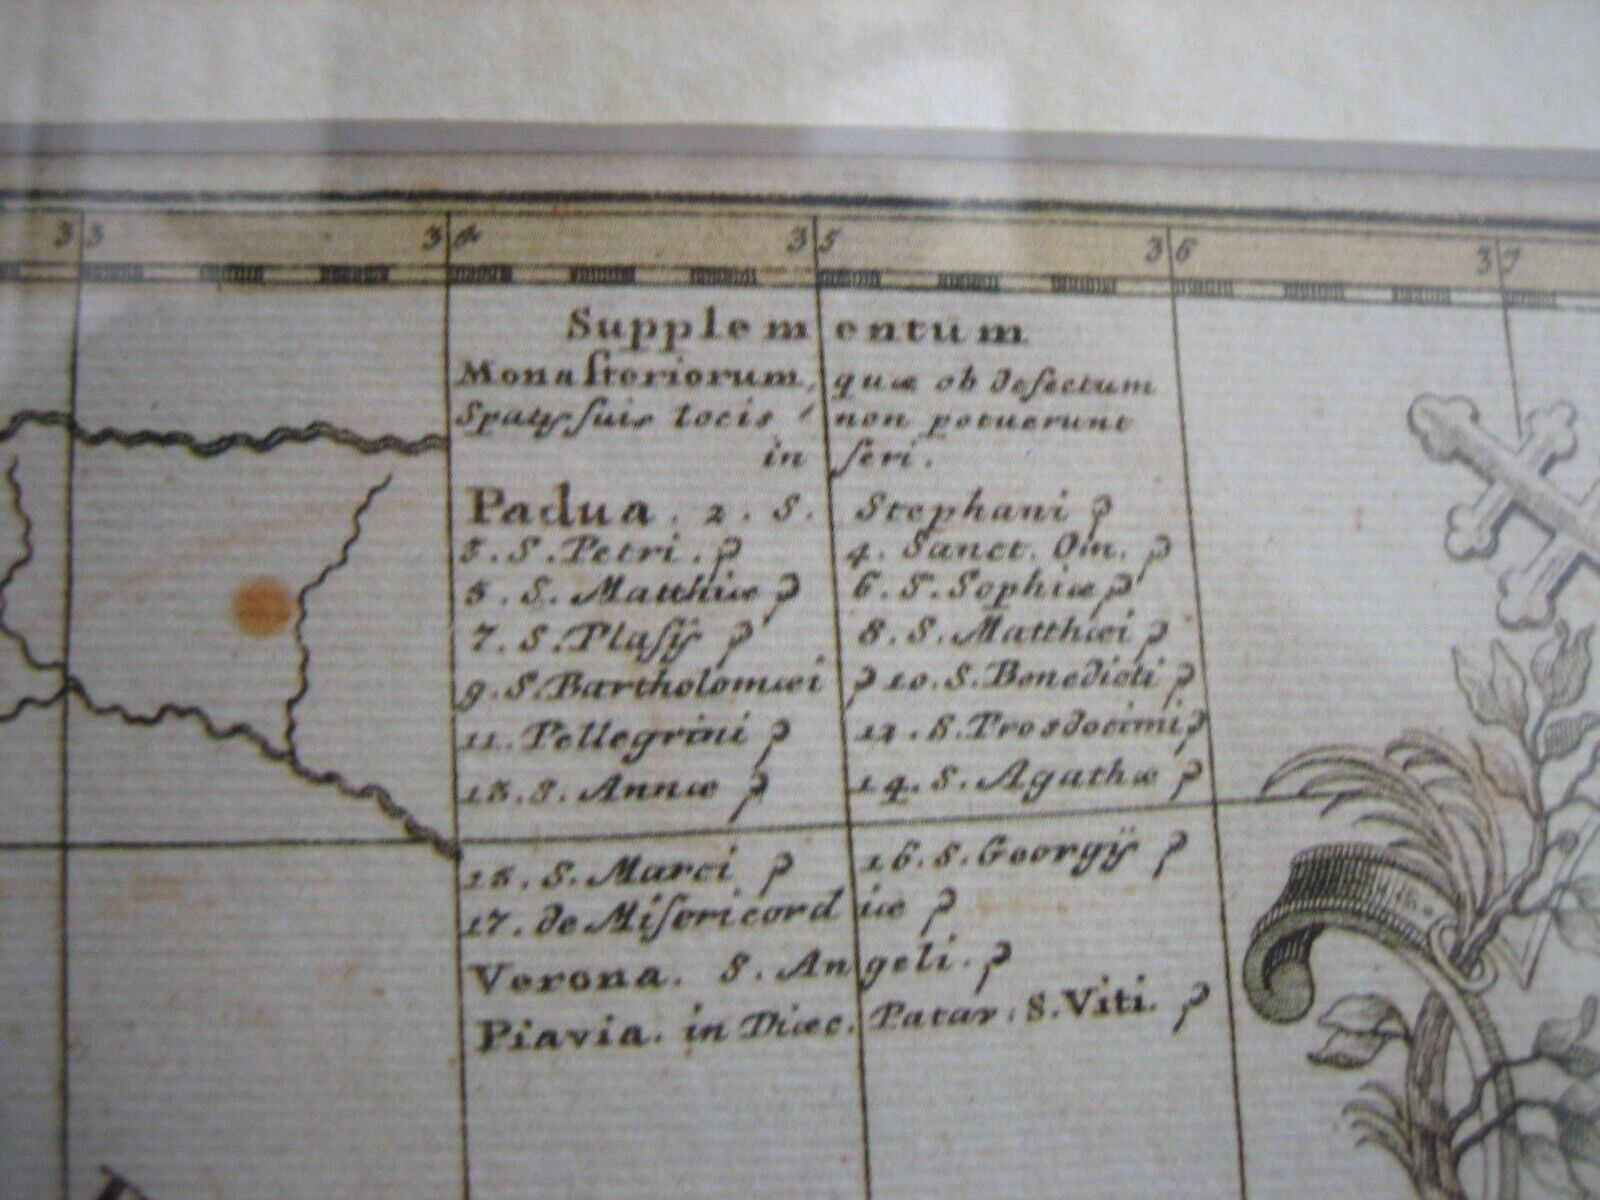 33 34 35 36 37
Supplementum
Monaſteriorum, quæ ob defectum
Spatijs ſuis locis non potuerunt
in ſeri.
Padua. 2. S. Stephani
3. S. Petri. 4. Sanct. Om.
5. S. Matthiæ 6. S. Sophiæ
7. S. Plaſÿ 8. S. Matthæi
9. S. Bartholomæi 10. S. Benedicti
11. Pellegrini 12. S. Prosdocimi
13. S. Annæ 14. S. Agathæ
15. S. Marci 16. S. Georgÿ
17. de Miſericordiæ
Verona. S. Angeli.
Piavia. in Diæc. Patav: S. Viti.